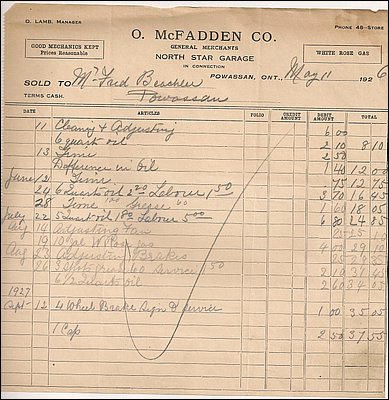 O. LAMB, MANAGER
PHONE 48-STORE
O. McFADDEN CO.
GENERAL MERCHANTS
GOOD MECHANICS KEPT
Prices Reasonable
NORTH STAR GARAGE
IN CONNECTION
WHITE ROSE GAS
POWASSAN, ONT., May 11 1926
SOLD TO Mr Fred
Powassan
TERMS CASH.
DATE ARTICLES FOLIO CREDIT AMOUNT DEBIT AMOUNT BALANCE
11 Cleaning & Adjusting 6 00
6 quart oil 2 10 8 10
13 Time 2 50
Difference in Oil 1 40 12 00
June 21 Time 75 12 75
24 6 Quart oil 2 20 Labour 1 50 3 70 16 45
28 Time 1 00 Grease 60 1 60 18 05
July 22 5 Quart oil 1 80 Labour 5 00 6 80 24 85
Aug 14 Adjusting Fan 25 25 10
19 10 Gal W Rose gas 4 00 29 10
Aug 23 Adjustin Brakes 25 29 35
26 60 Service 1 50 2 10
6 1/2 Quart oil 2 60 34 05
1927
Sept 12 4 Wheel Brake & Service 1 00 35 05
1 Cap 2 50 37 55